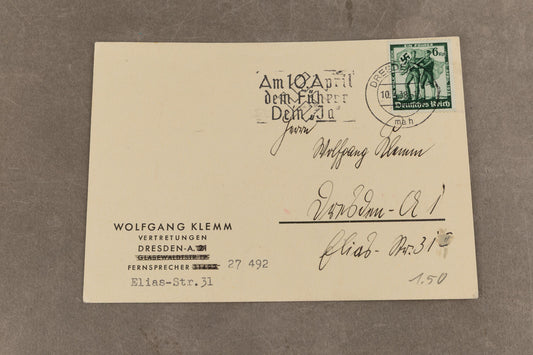 Am 10. April
dem Führer
Dein „Ja"
EIN FÜHRER
6
Deutsches Reich
DRESDEN
10.
Herrn
Wolfgang Klemm
Dresden-A 1
Elias-Str. 31 II
1.50
WOLFGANG KLEMM
VERTRETUNGEN
DRESDEN-A. 21
GLASEWALDTSTR. 12
FERNSPRECHER 31493 27 492
Elias-Str.31